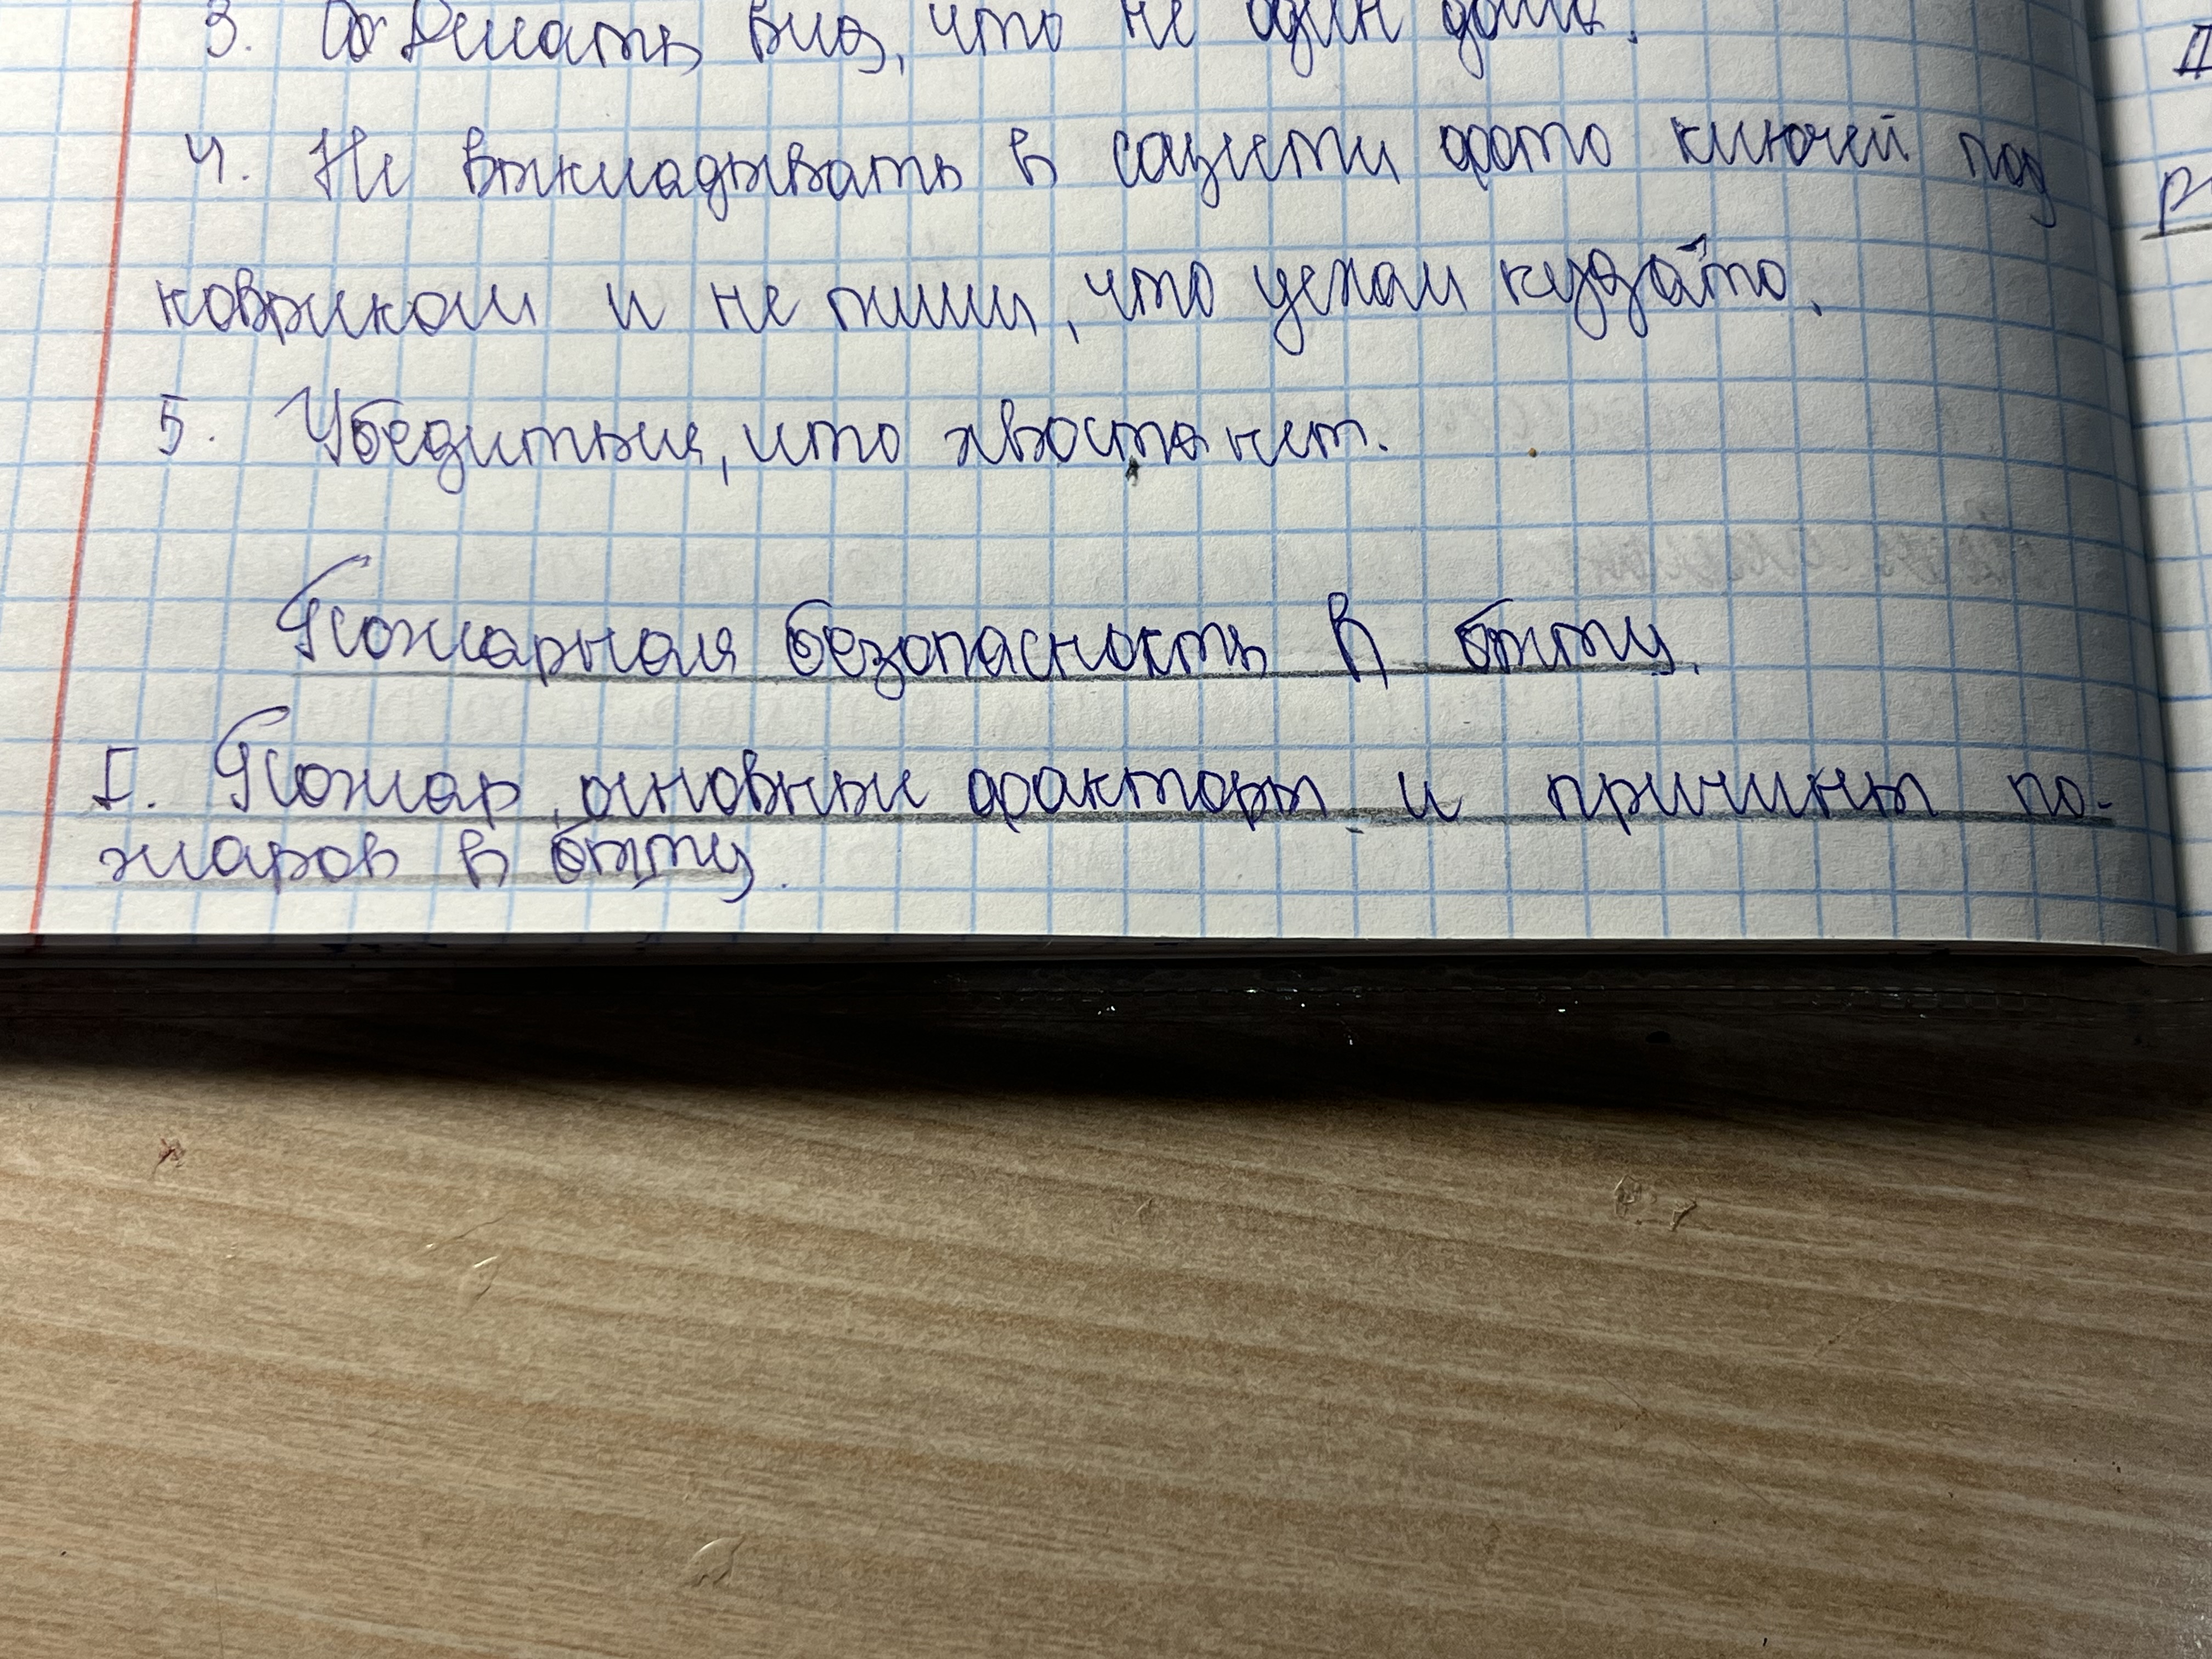 3. Делать вид, что не один дома.
4. Не выкладывать в соцсети фото ключей под
ковриком и не пиши, что уехал куда-то.
5. Убедиться, что хвоста нет.
Пожарная безопасность в быту.
I. Пожар, основные факторы и причины по-
жаров в быту.
II